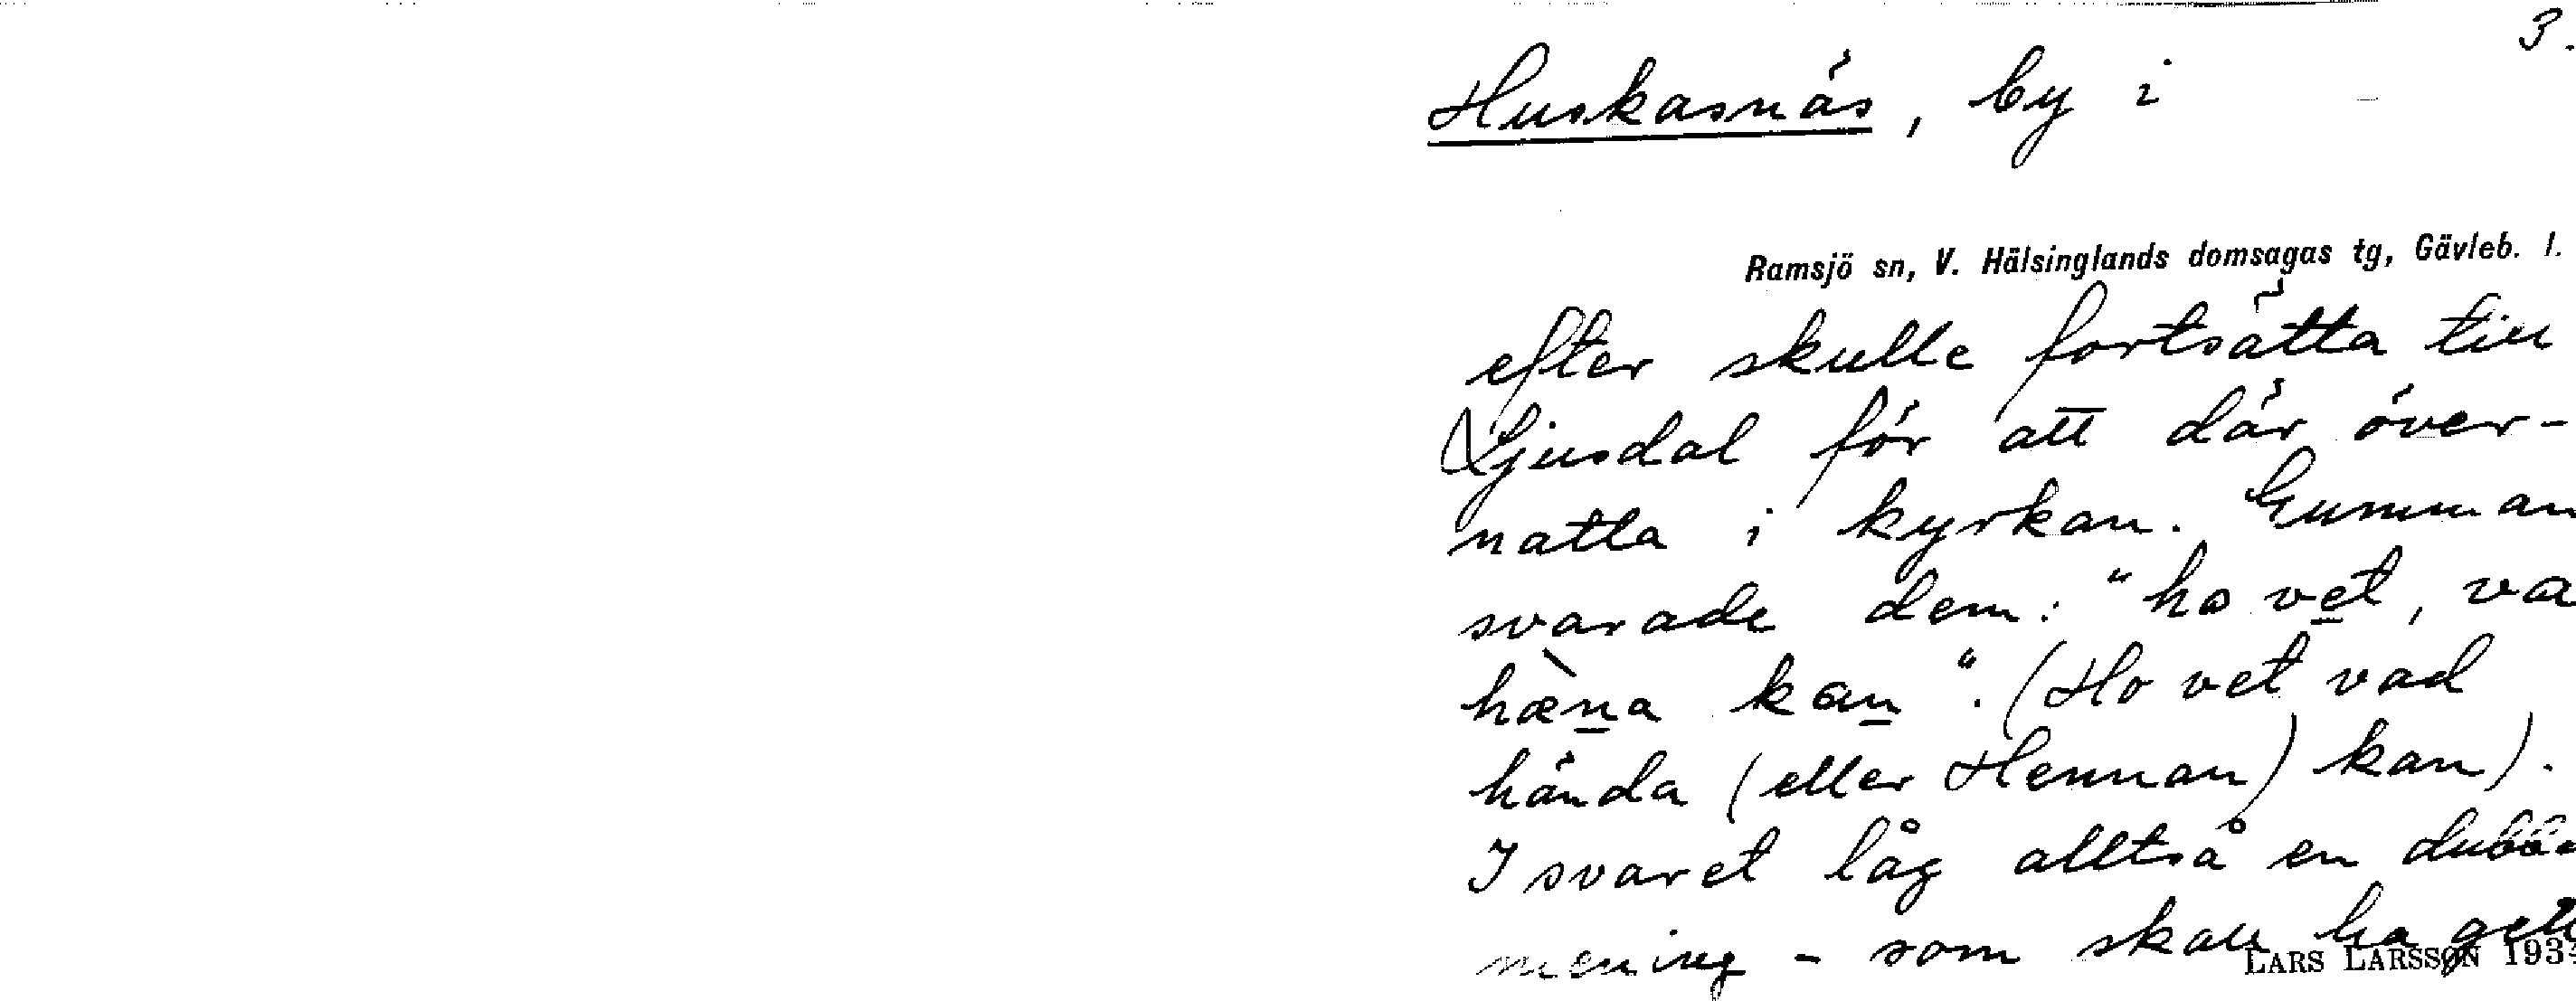 3.
Huskasnäs, by i
Ramsjö sn, V. Hälsinglands domsagas tg, Gävleb. l.
efter skulle fortsätta till
Ljusdal för att där över-
natta i kyrkan. Gumman
svarade dem: "ho vet, va
hæna kan". (Ho vet vad
hända (eller Hennan) kan).
I svaret låg alltså en
mening - som skall ha
LARS LARSSON